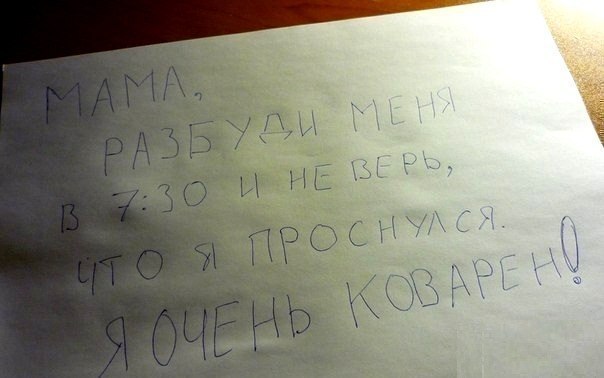 МАМА,
РАЗБУДИ МЕНЯ
В 7:30 И НЕ ВЕРЬ,
ЧТО Я ПРОСНУЛСЯ.
Я ОЧЕНЬ КОВАРЕН!